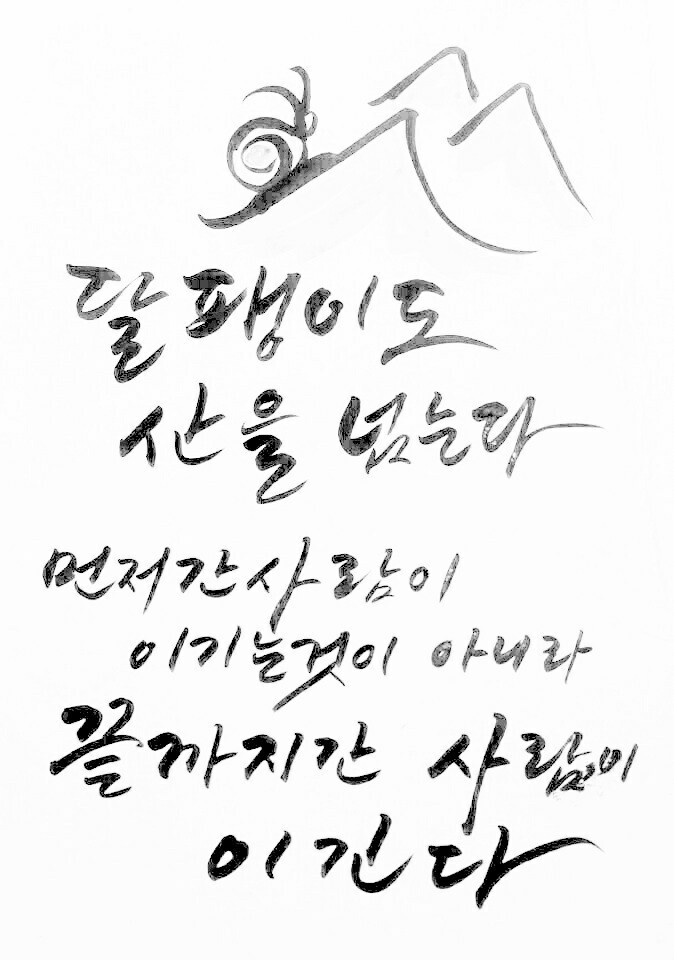 달팽이도
산을 넘는다
먼저간사람이
이기는것이 아니라
끝까지간 사람이
이긴다